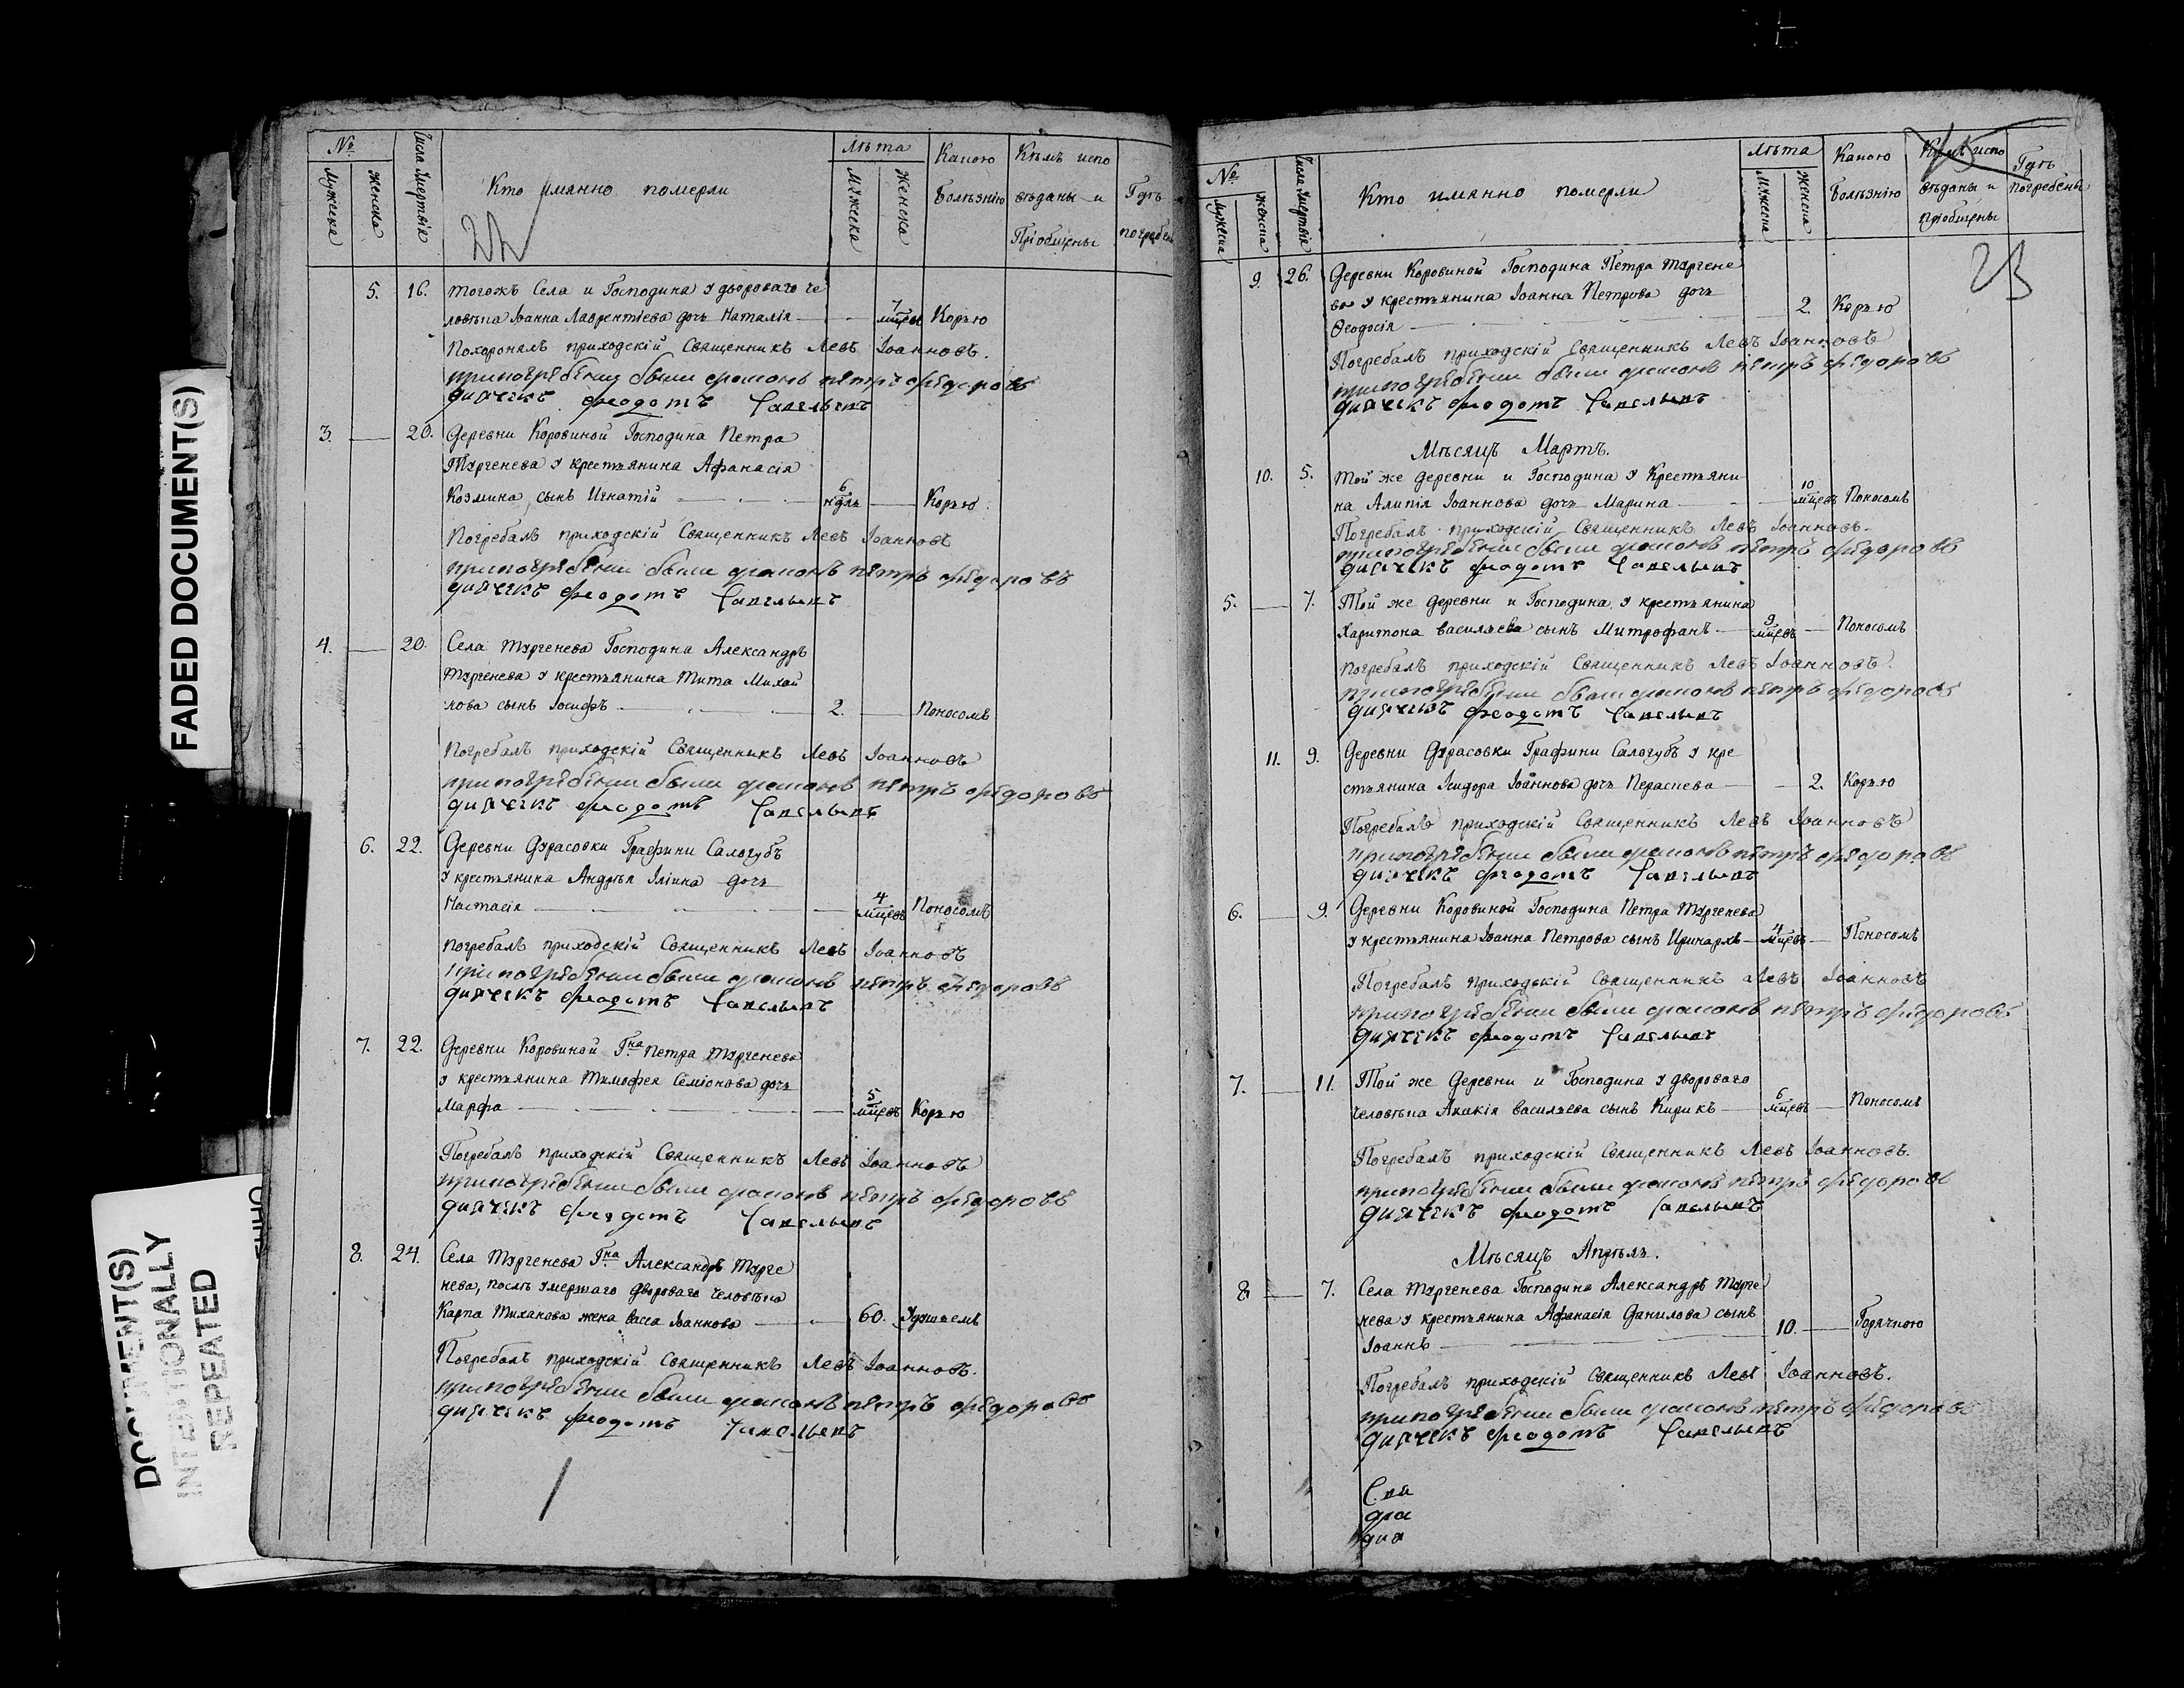 FADED DOCUMENT(S)
DOCUMENT(S)
INTENTIONALLY
REPEATED
№
Мужеска
Женска
Числа Умертвія
Кто имянно померли
Лѣта
Мужеска
Женска
Какою
болѣзнію
Кѣмъ испо
вѣданы и
Пріобщены
Гдѣ
погребен
22
5. 16. тогожъ Села и Господина у двороваго че
ловѣка Іоанна Лаврентіева дочь Наталія 7 мцовъ Корью
Похоронялъ приходскій Священникъ Левъ Іоанновъ.
при погребении были диаконъ петръ федоровъ
диячекъ феодотъ Савельевъ
3. 20. Деревни Коровиной Господина Петра
Тургенева у крестьянина Афанасія
Козмина, сынъ Игнатій 6 ндль Корью.
Погребалъ приходскій Священникъ Левъ Іоанновъ
при погребении были диаконъ петръ федоровъ
диячекъ феодотъ Савельевъ
4. 20. Села Тургенева Господина Александръ
Тургенева у крестьянина Тита Михай
лова сынъ Іосифъ 2. Поносомъ
Погребалъ приходскій Священникъ Левъ Іоанновъ
при погребении были диаконъ петръ федоровъ
диячекъ феодотъ Савельевъ
6. 22. Деревни Дурасовки Графини Салогубъ
у крестьянина Андрѣя Иліина дочь
Настасія 4 мцовъ Поносомъ
Погребалъ приходскій Священникъ Левъ Іоанновъ
при погребении были диаконъ петръ федоровъ
диячекъ феодотъ Савельевъ
7. 22. Деревни Коровиной Гна Петра Тургенева
у крестьянина Тимофея Семіонова дочь
Марфа 5 мцовъ Корью
Погребалъ приходскій Священникъ Левъ Іоанновъ
при погребении были диаконъ петръ федоровъ
диячекъ феодотъ Савельевъ
8. 24. Села Тургенева Гна Александръ Турге
нева, послѣ умершаго двороваго человѣка
Карпа Тиханова жена васса Іоаннова 60. Удушьемъ
Погребалъ приходскій Священникъ Левъ Іоанновъ.
при погребении были диаконъ петръ федоровъ
диячекъ феодотъ Савельевъ
№
Мужеска
Женска
Числа Умертвія
Кто имянно померли
Лѣта
Мужеска
Женска
Какою
болѣзнію
Кѣмъ испо
вѣданы и
пріобщены
Гдѣ
погребены
23
9. 26. Деревни Коровиной Господина Петра Тургене
ва у крестьянина Іоанна Петрова дочь
Феодосія 2. Корью
Погребалъ приходскій Священникъ Левъ Іоанновъ
при погребении были диаконъ петръ федоровъ
диячекъ феодотъ Савельевъ
Мѣсяцъ Мартъ.
10. 5. Той же деревни и Господина у Крестьяни
на Алипія Іоаннова дочь Марина 10 мцовъ Поносомъ
Погребалъ приходскій Священникъ Левъ Іоанновъ.
при погребении были диаконъ петръ федоровъ
диячекъ феодотъ Савельевъ
5. 7. Той же деревни и Господина у крестьянина
Харитона васильева сынъ Митрофанъ 9 мцовъ Поносомъ
Погребалъ приходскій Священникъ Левъ Іоанновъ.
при погребении были диаконъ петръ федоровъ
диячекъ феодотъ Савельевъ
11. 9. Деревни Дурасовки Графини Салогубъ у кре
стьянина Исидора Іоаннова дочь Параскева 2. Корью
Погребалъ приходскій Священникъ Левъ Іоанновъ
при погребении были диаконъ петръ федоровъ
диячекъ феодотъ Савельевъ
6. 9. Деревни Коровиной Господина Петра Тургенева
у крестьянина Іоанна Петрова сынъ Иринархъ 4 мцовъ Поносомъ
Погребалъ приходскій Священникъ Левъ Іоанновъ
при погребении были диаконъ петръ федоровъ
диячекъ феодотъ Савельевъ
7. 11. Той же Деревни и Господина у двороваго
человѣка Акакія васильева сынъ Кирикъ 6 мцовъ Поносомъ
Погребалъ приходскій Священникъ Левъ Іоанновъ.
при погребении были диаконъ петръ федоровъ
диячекъ феодотъ Савельевъ
Мѣсяцъ Апрѣль.
8 7. Села Тургенева Господина Александръ Турге
нева у крестьянина Афанасія Данилова сынъ
Іоаннъ 10. Горячкою
Погребалъ приходскій Священникъ Левъ Іоанновъ.
при погребении были диаконъ петръ федоровъ
диячекъ феодотъ Савельевъ
Свя
диа
дия